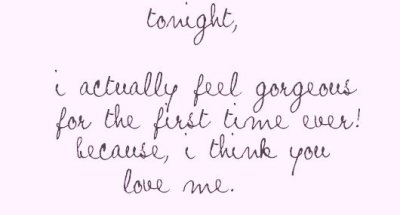 tonight,
i actually feel gorgeous
for the first time ever!
because, i think you
love me.